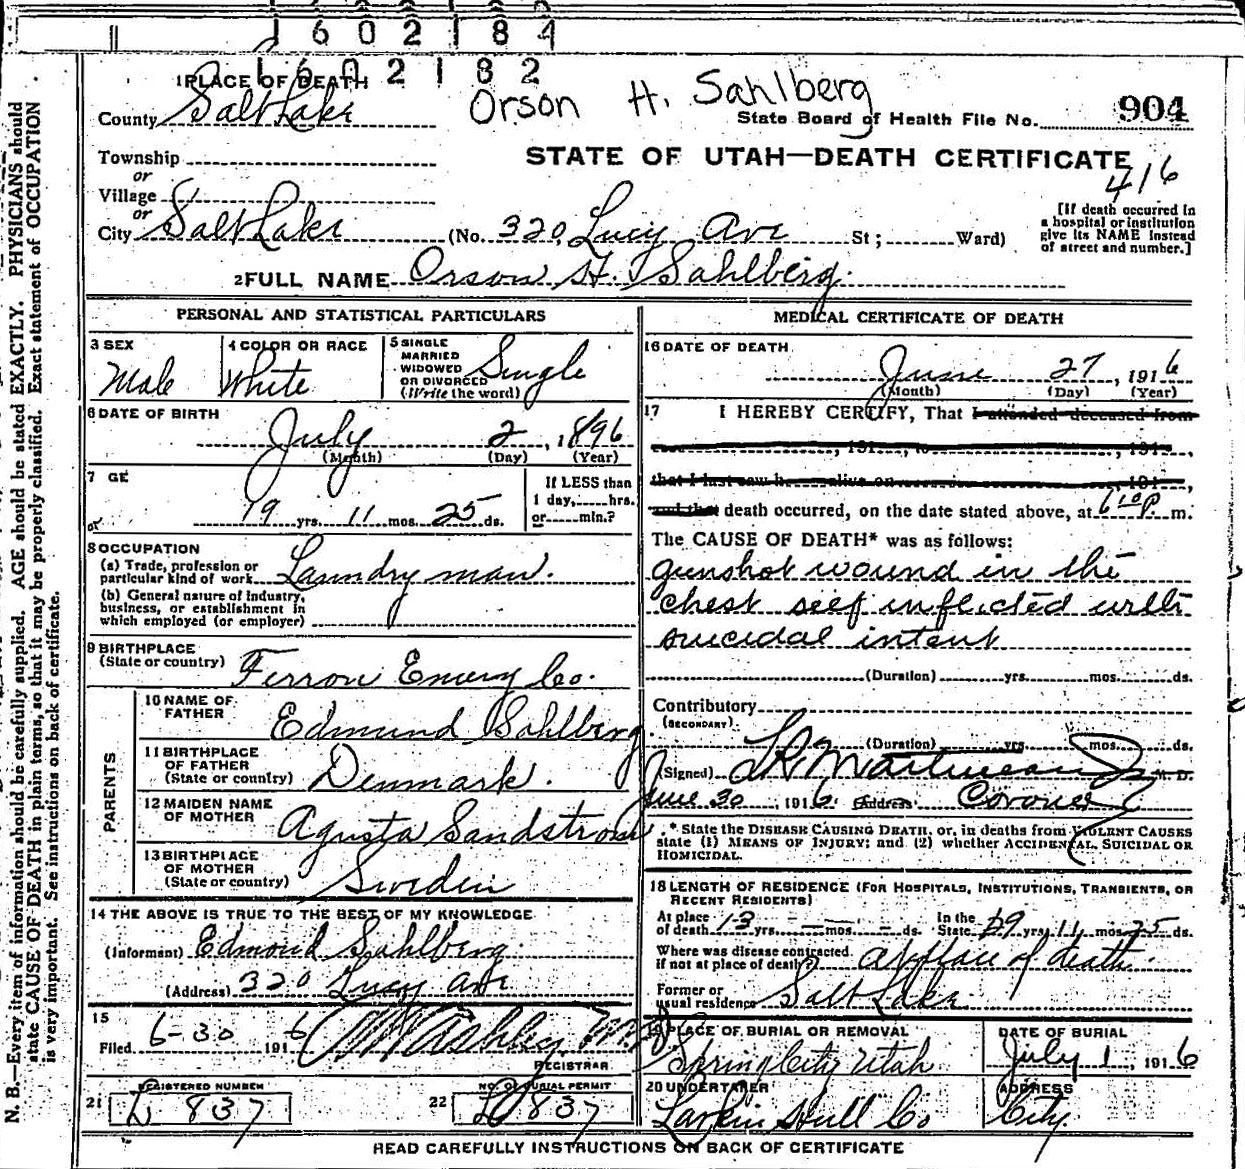 1 6 0 2 1 8 4
1 6 0 2 1 8 2
Orson H. Sahlberg
1 PLACE OF DEATH
County Salt Lake
State Board of Health File No. 904
STATE OF UTAH—DEATH CERTIFICATE
416
Township
or
Village
or
City Salt Lake (No. 320 Lucy Ave St; Ward)
[If death occurred in
a hospital or institution
give its NAME instead
of street and number.]
2 FULL NAME Orson H. Sahlberg.
PERSONAL AND STATISTICAL PARTICULARS
3 SEX
Male
4 COLOR OR RACE
White
5 SINGLE
MARRIED
WIDOWED
OR DIVORCED
(Write the word)
Single
6 DATE OF BIRTH
July 2, 1896
(Month) (Day) (Year)
7 GE
19 yrs. 11 mos. 25 ds.
If LESS than
1 day, hrs.
or min.?
8 OCCUPATION
(a) Trade, profession or
particular kind of work Laundry man.
(b) General nature of industry,
business, or establishment in
which employed (or employer)
9 BIRTHPLACE
(State or country) Ferron Emery Co.
PARENTS
10 NAME OF
FATHER Edmund Sahlberg
11 BIRTHPLACE
OF FATHER
(State or country) Denmark.
12 MAIDEN NAME
OF MOTHER Agusta Sandstrom
13 BIRTHPLACE
OF MOTHER
(State or country) Sweden
14 THE ABOVE IS TRUE TO THE BEST OF MY KNOWLEDGE
(Informant) Edmond Sahlberg.
(Address) 320 Lucy Ave
15
Filed 6-30 1916
REGISTRAR
REGISTERED NUMBER
21 D 837
NO. OF BURIAL PERMIT
22 D 837
MEDICAL CERTIFICATE OF DEATH
16 DATE OF DEATH
June 27, 1916
(Month) (Day) (Year)
17 I HEREBY CERTIFY, That I attended deceased from
, 191 , to , 191 ,
that I last saw h alive on , 191 ,
and that death occurred, on the date stated above, at 6 10 P. m.
The CAUSE OF DEATH* was as follows:
gunshot wound in the
chest self inflicted with
suicidal intent
(Duration) yrs. mos. ds.
Contributory
(SECONDARY)
(Duration) yrs. mos. ds.
(Signed) M. D.
June 30, 1916. Address Coroner
* State the DISEASE CAUSING DEATH, or, in deaths from VIOLENT CAUSES
state (1) MEANS OF INJURY; and (2) whether ACCIDENTAL, SUICIDAL OR
HOMICIDAL.
18 LENGTH OF RESIDENCE (FOR HOSPITALS, INSTITUTIONS, TRANSIENTS, OR
RECENT RESIDENTS)
At place
of death 13 yrs. — mos. - ds. In the
State 19 yrs. 11 mos. 25 ds.
Where was disease contracted
if not at place of death? At place of death.
Former or
usual residence Salt Lake
19 PLACE OF BURIAL OR REMOVAL
Spring City Utah
DATE OF BURIAL
July 1, 1916
20 UNDERTAKER
Larkin Hull Co
ADDRESS
City.
HEAD CAREFULLY INSTRUCTIONS ON BACK OF CERTIFICATE
N. B.—Every item of information should be carefully supplied. AGE should be stated EXACTLY. PHYSICIANS should
state CAUSE OF DEATH in plain terms, so that it may be properly classified. Exact statement of OCCUPATION
is very important. See instructions on back of certificate.